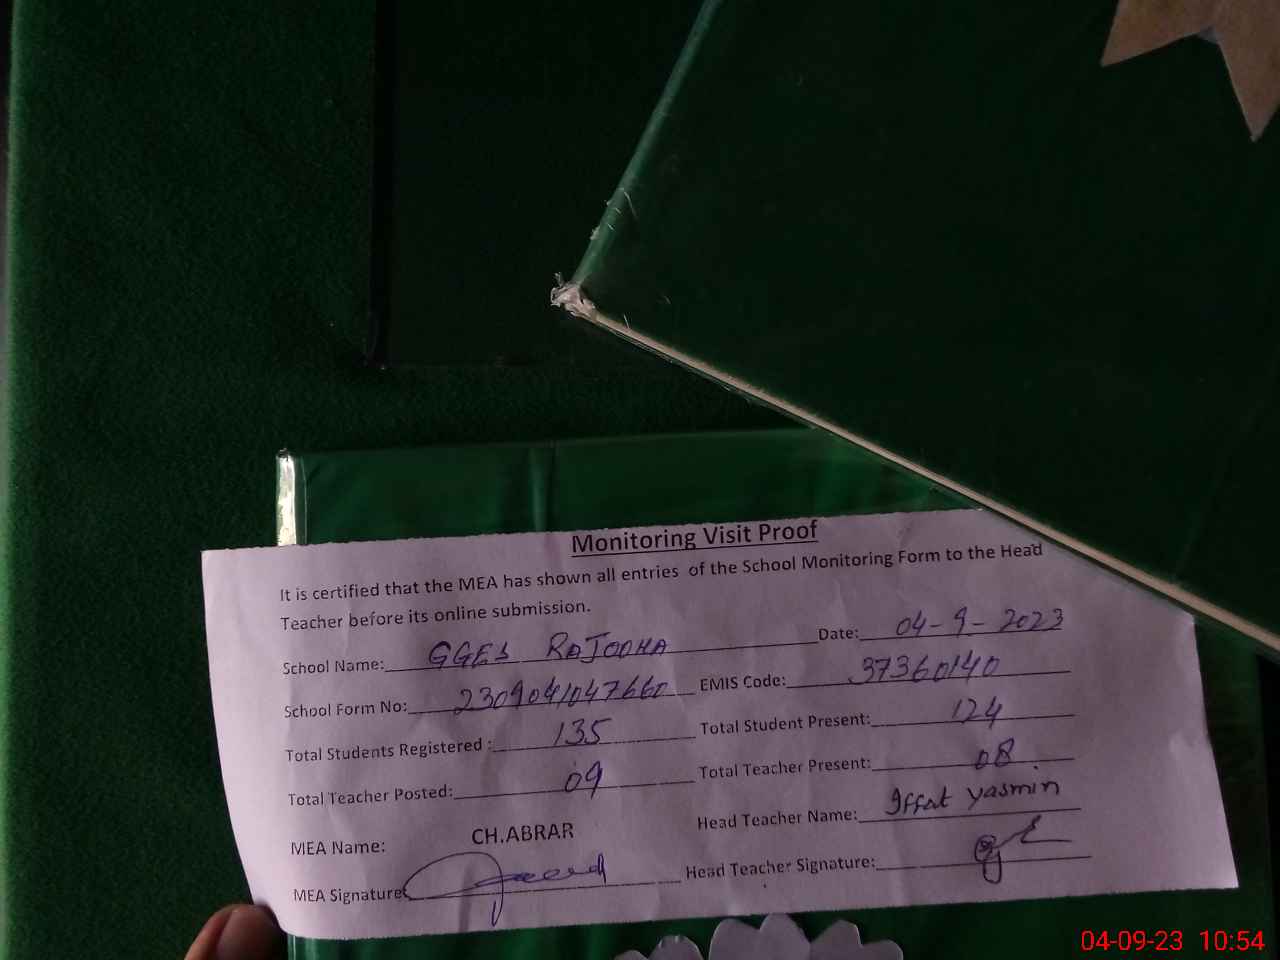 Monitoring Visit Proof
It is certified that the MEA has shown all entries of the School Monitoring Form to the Head
Teacher before its online submission.
School Name: GGES RAJOOHA Date: 04-9-2023
School Form No: 230904/047660 EMIS Code: 37360140
Total Students Registered : 135 Total Student Present: 124
Total Teacher Posted: 09 Total Teacher Present: 08
MEA Name: CH.ABRAR Head Teacher Name: Iffat Yasmin
MEA Signature Head Teacher Signature:
04-09-23 10:54